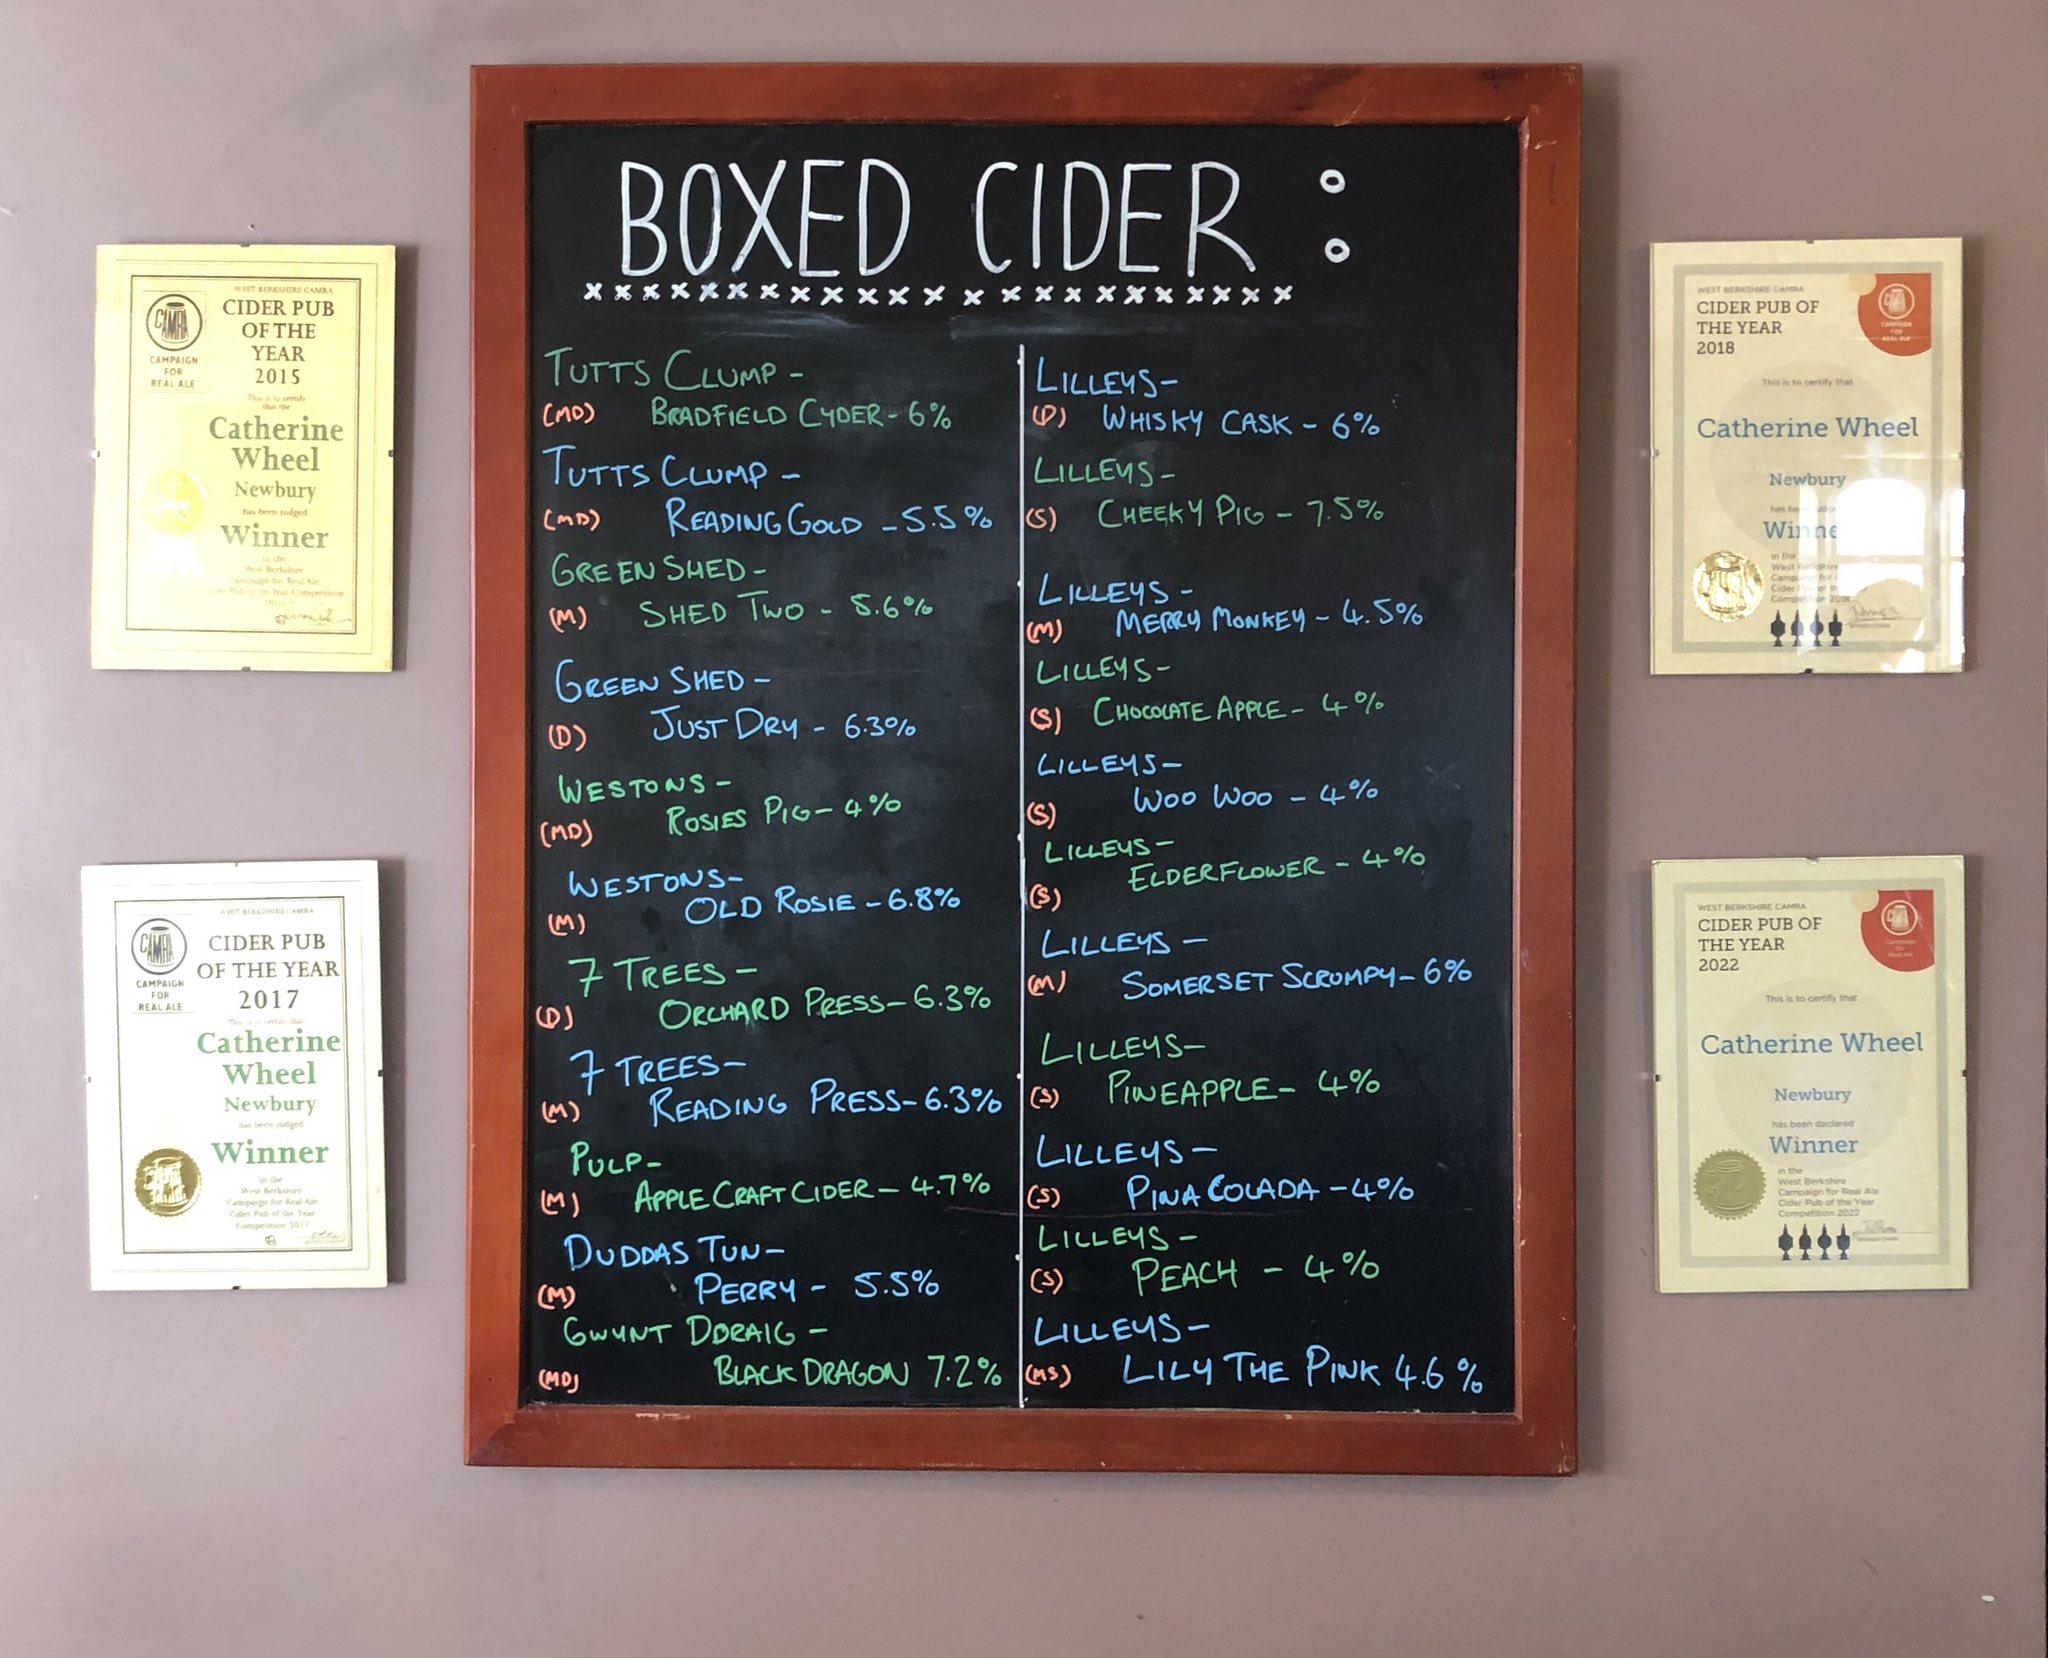 BOXED CIDER :
TUTTS CLUMP -
(MD) BRADFIELD CYDER - 6%
TUTTS CLUMP -
(MD) READING GOLD - 5.5%
GREEN SHED -
(M) SHED TWO - 5.6%
GREEN SHED -
(D) JUST DRY - 6.3%
WESTONS -
(MD) ROSIES PIG - 4%
WESTONS -
(M) OLD ROSIE - 6.8%
7 TREES -
(D) ORCHARD PRESS - 6.3%
7 TREES -
(M) READING PRESS - 6.3%
PULP -
(M) APPLE CRAFT CIDER - 4.7%
DUDDAS TUN -
(M) PERRY - 5.5%
GWYNT DDRAIG -
(MD) BLACK DRAGON 7.2%
LILLEYS -
(D) WHISKY CASK - 6%
LILLEYS -
(S) CHEEKY PIG - 7.5%
LILLEYS -
(M) MERRY MONKEY - 4.5%
LILLEYS -
(S) CHOCOLATE APPLE - 4%
LILLEYS -
(S) WOO WOO - 4%
LILLEYS -
(S) ELDERFLOWER - 4%
LILLEYS -
(M) SOMERSET SCRUMPY - 6%
LILLEYS -
(S) PINEAPPLE - 4%
LILLEYS -
(S) PINA COLADA - 4%
LILLEYS -
(S) PEACH - 4%
LILLEYS -
(MS) LILY THE PINK 4.6%
WEST BERKSHIRE CAMRA
CIDER PUB
OF THE
YEAR
2015
CAMRA
CAMPAIGN
FOR
REAL ALE
This is to certify
that the
Catherine
Wheel
Newbury
has been judged
Winner
in the
West Berkshire
Campaign for Real Ale
Cider Pub of the Year Competition
WEST BERKSHIRE CAMRA
CIDER PUB
OF THE YEAR
2017
CAMRA
CAMPAIGN
FOR
REAL ALE
This is to certify that
Catherine
Wheel
Newbury
has been judged
Winner
in the
West Berkshire
Campaign for Real Ale
Cider Pub of the Year
Competition 2017
WEST BERKSHIRE CAMRA
CIDER PUB OF
THE YEAR
2018
CAMPAIGN
FOR
REAL ALE
This is to certify that
Catherine Wheel
Newbury
has been
Winne
in the
West Berkshire
Campaign for
Cider Pub of
Competition 2018
WEST BERKSHIRE CAMRA
CIDER PUB OF
THE YEAR
2022
Campaign
for
Real Ale
This is to certify that
Catherine Wheel
Newbury
has been declared
Winner
in the
West Berkshire
Campaign for Real Ale
Cider Pub of the Year
Competition 2022